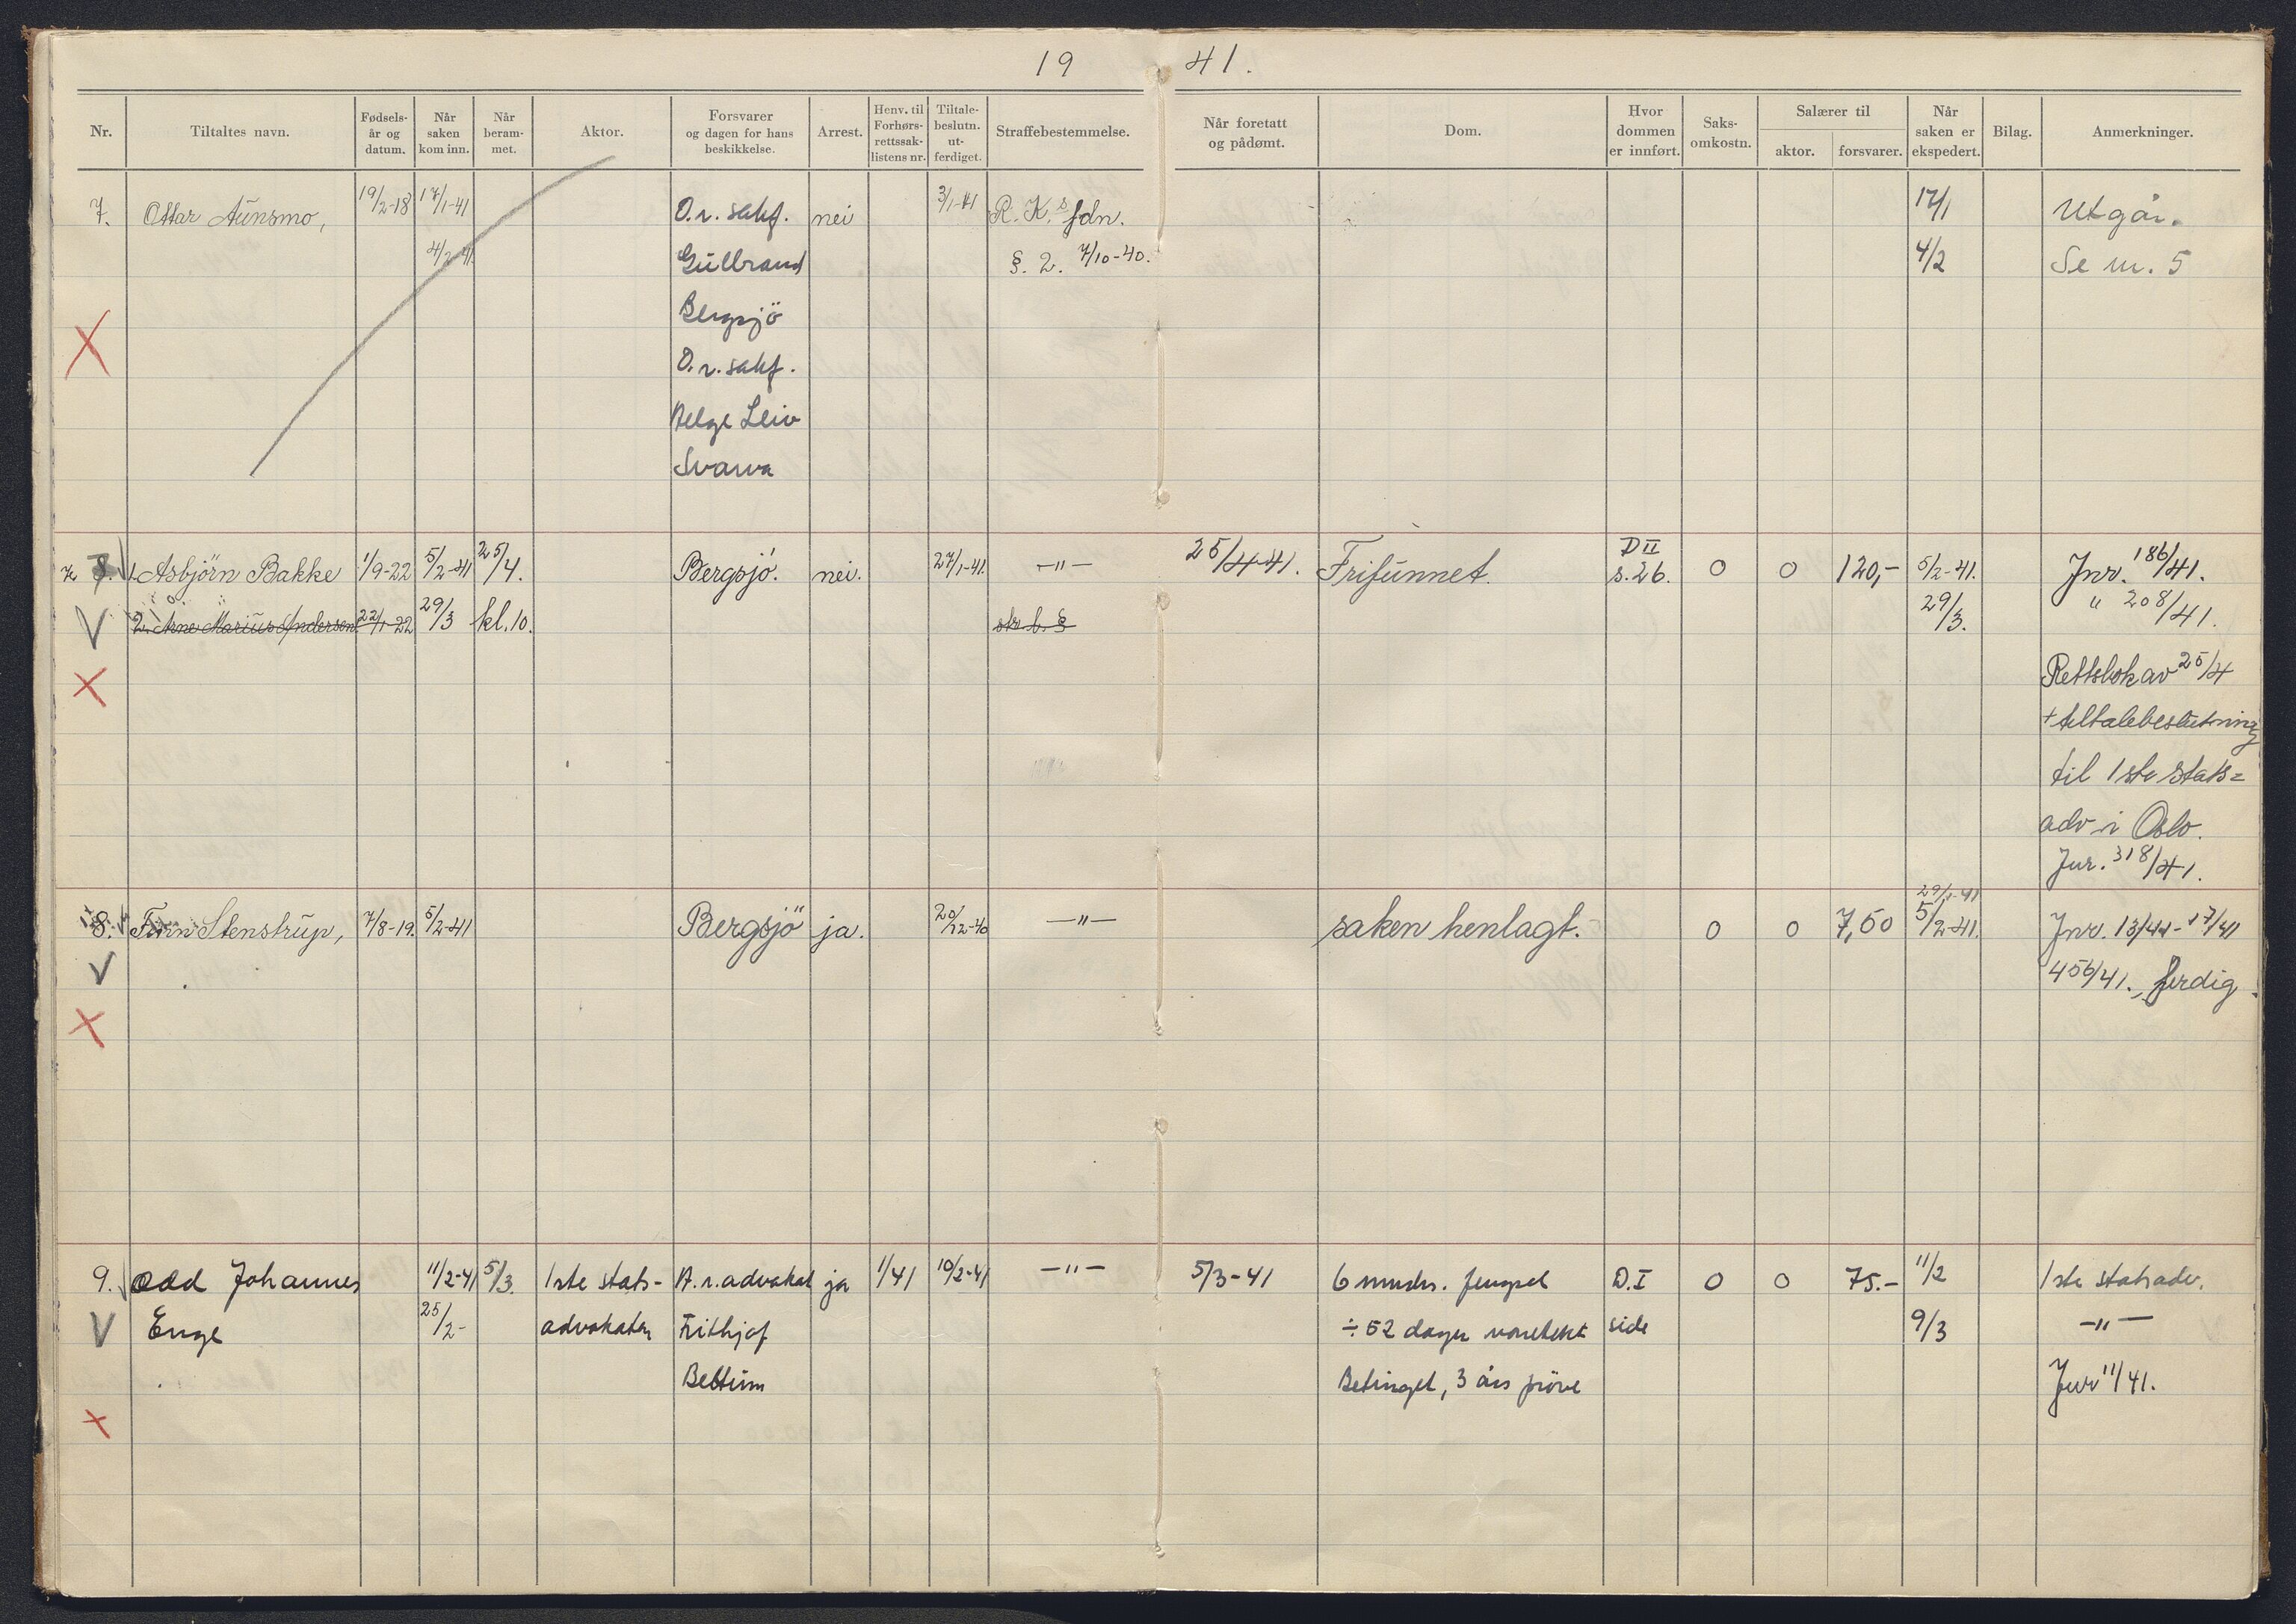 19 41.
Nr. Tiltaltes navn. Fødsels-år og datum. Når saken kom inn. Når beram-met. Aktor. Forsvarer og dagen for hans beskikkelse. Arrest. Henv. til Forhørs-rettssak-listens nr. Tiltale-beslutn. ut-ferdiget. Straffebestemmelse. Når foretatt og pådømt. Dom. Hvor dommen er innført. Saks-omkostn. Salærer til aktor. forsvarer. Når saken er ekspedert. Bilag. Anmerkninger.
7. Ottar Aunsmo, 19/2-18 17/1-41 O.r.sakf. nei 3/1-41 R.K.s fdn. 17/1 Utgår.
4/2-41 Gulbrand §. 2. 7/10-40. 4/2 Se nr. 5
Bergsjö
O.r.sakf.
Helge Leiv
Svarva
7. 1. Asbjörn Bakke 1/9-22 5/2-41 25/4. Bergsjö. nei. 27/1-41. —"— 25/4-41. Frifunnet. D II s.26. 0 0 120,- 5/2-41. Jnr. 186/41.
2. Arne Marius Andersen 22/1-22 29/3 kl.10. str.l. § 29/3. " 208/41.
Rettsbok av 25/4
+ tiltalebeslutning
til 1ste stats=
adv i Oslo.
Jnr. 318/41.
29/1-41
8. Finn Stenstrup, 7/8-19. 5/2-41 Bergsjö ja. 20/12-40 —"— saken henlagt. 0 0 7,50 5/2-41. Jnr. 13/41-17/41
456/41., ferdig.
9. Odd Johannes 11/2-41 5/3. 1ste stats- H.r.advokat ja 1/41 10/2-41 —"— 5/3-41 6 mndrs. fengsel D.I 0 0 75.- 11/2 1ste statsadv.
Enge 25/2- advokaten Frithjof ÷ 52 dager varetekt side 9/3 —"—
Bettum Betinget, 3 års pröve Jnr 11/41.